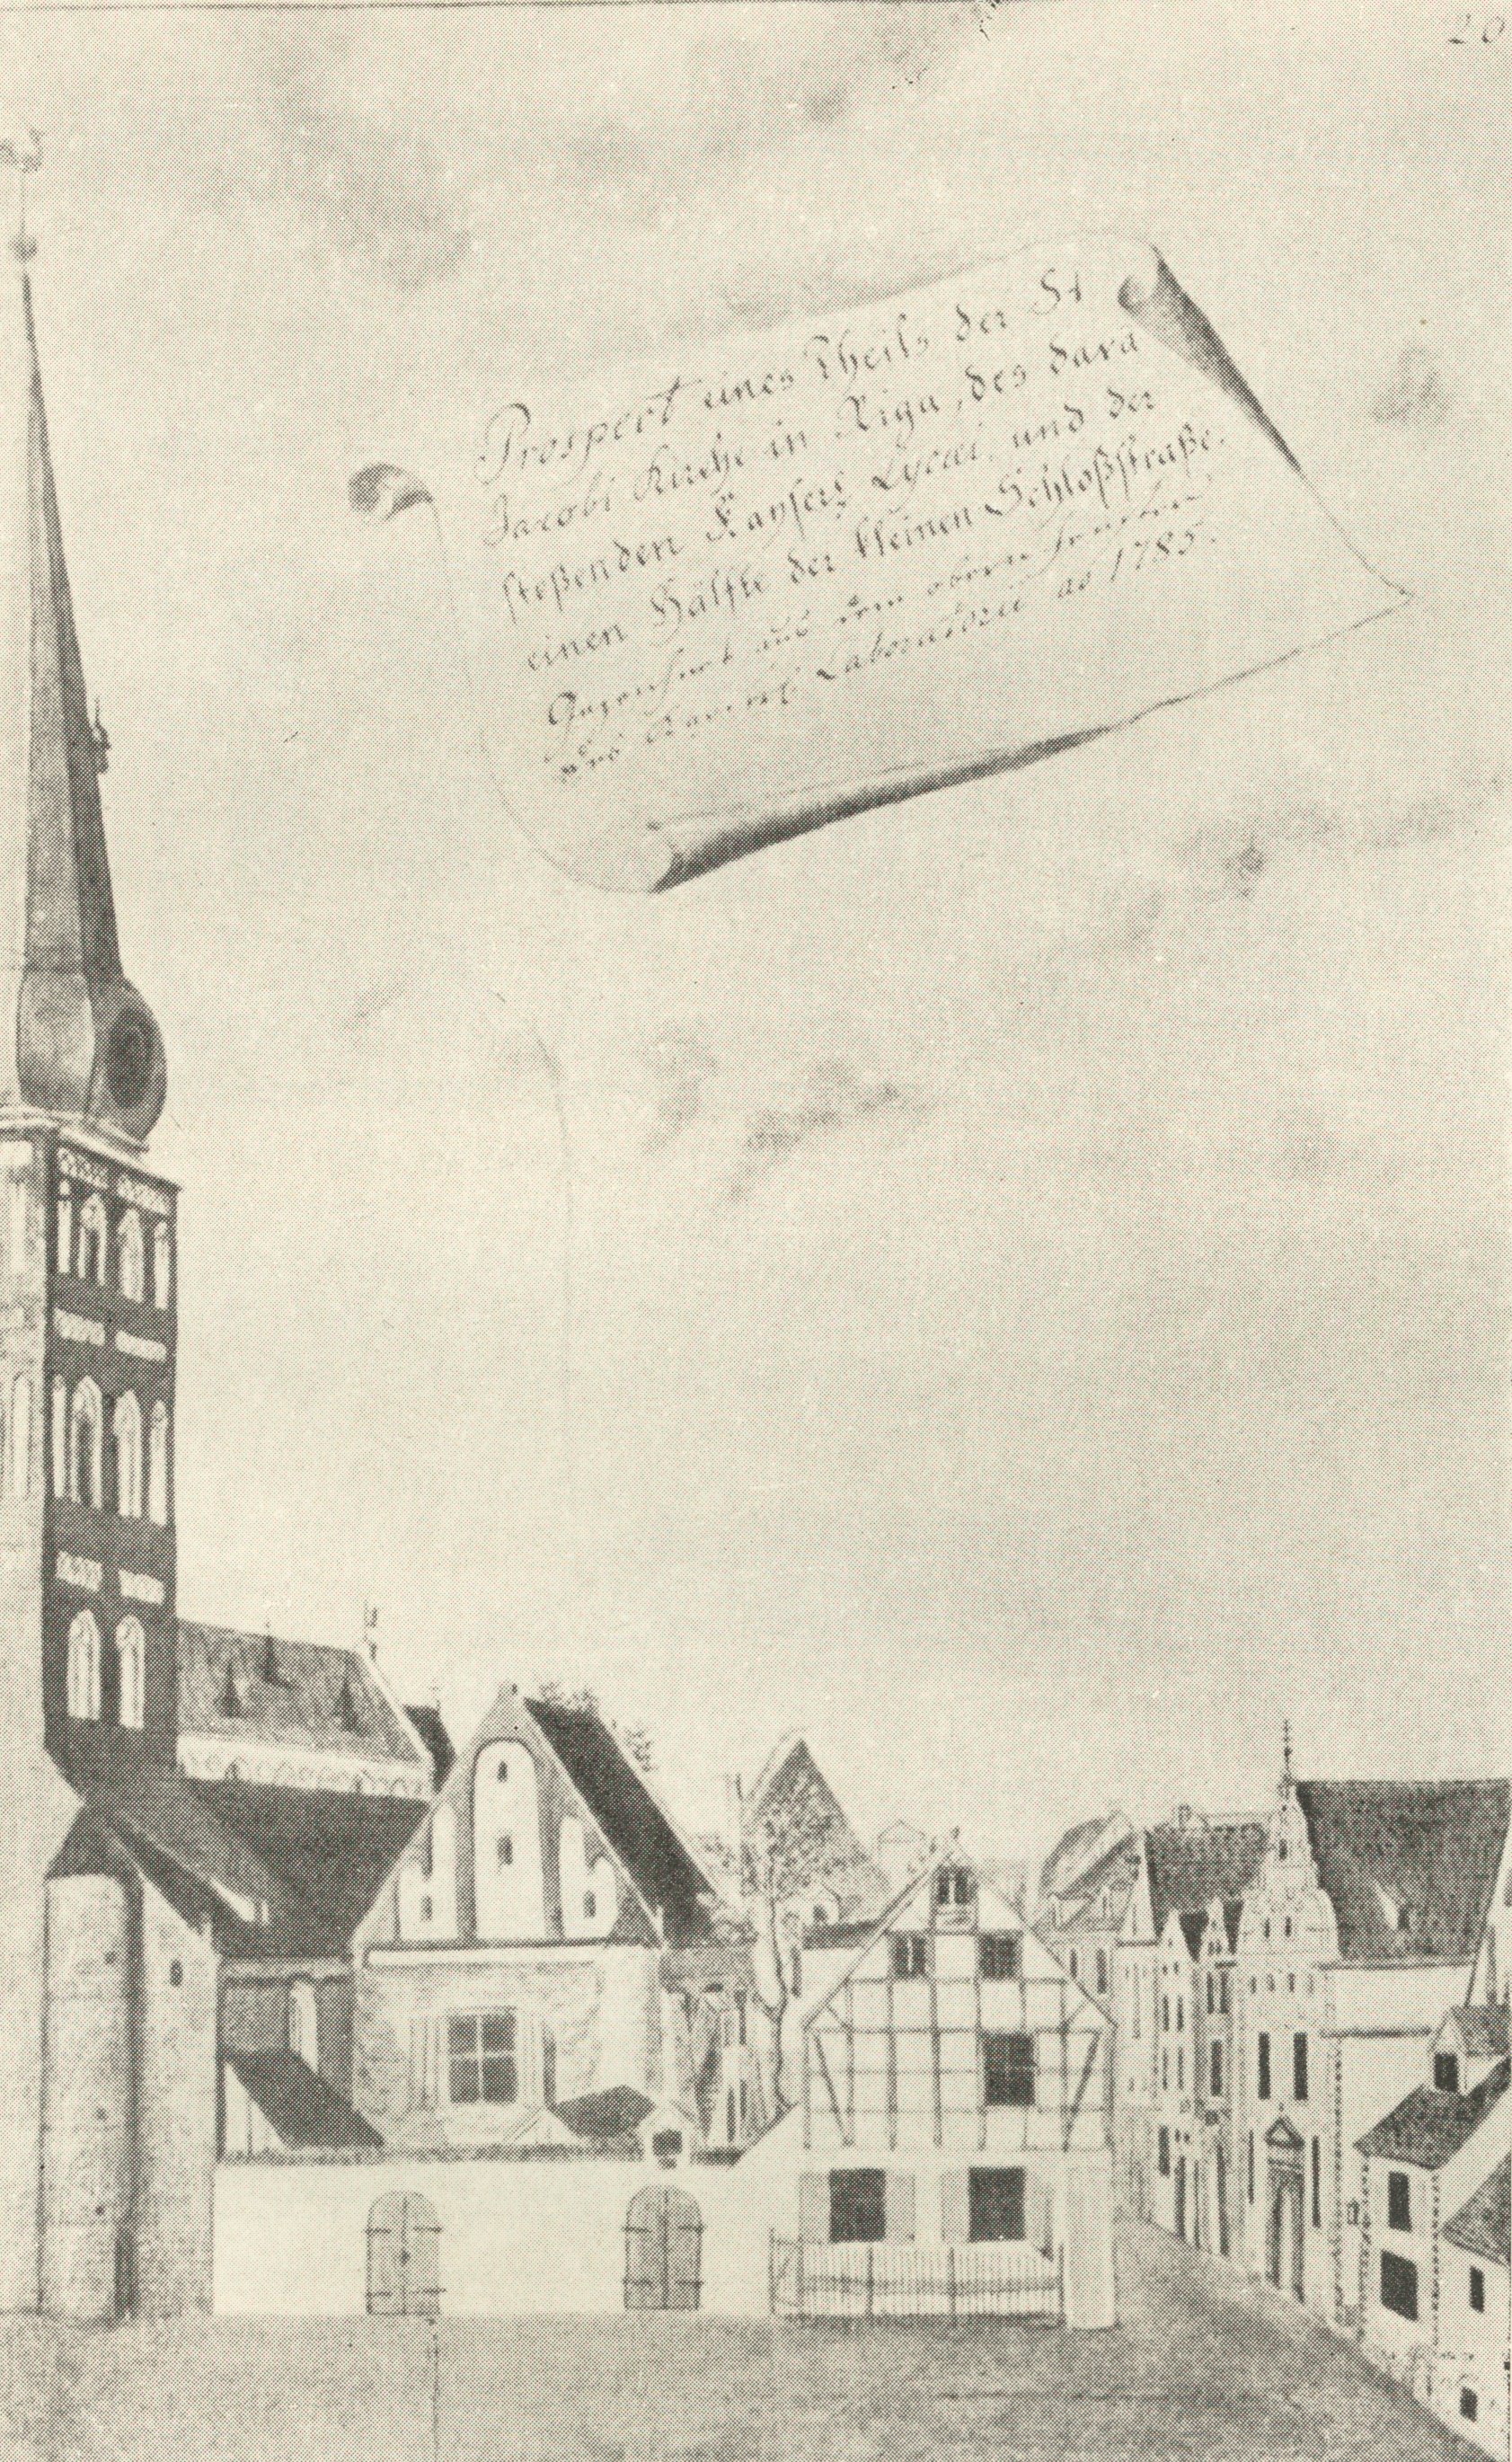 20
Prospect eines Theils der St
Jacobi Kirche in Riga, des dara
stoßenden Kaysers Lycei, und der
einen Hälfte der kleinen Schloßstraße.
Gezeichnet aus dem obern
des Laboratorii ao 1785.